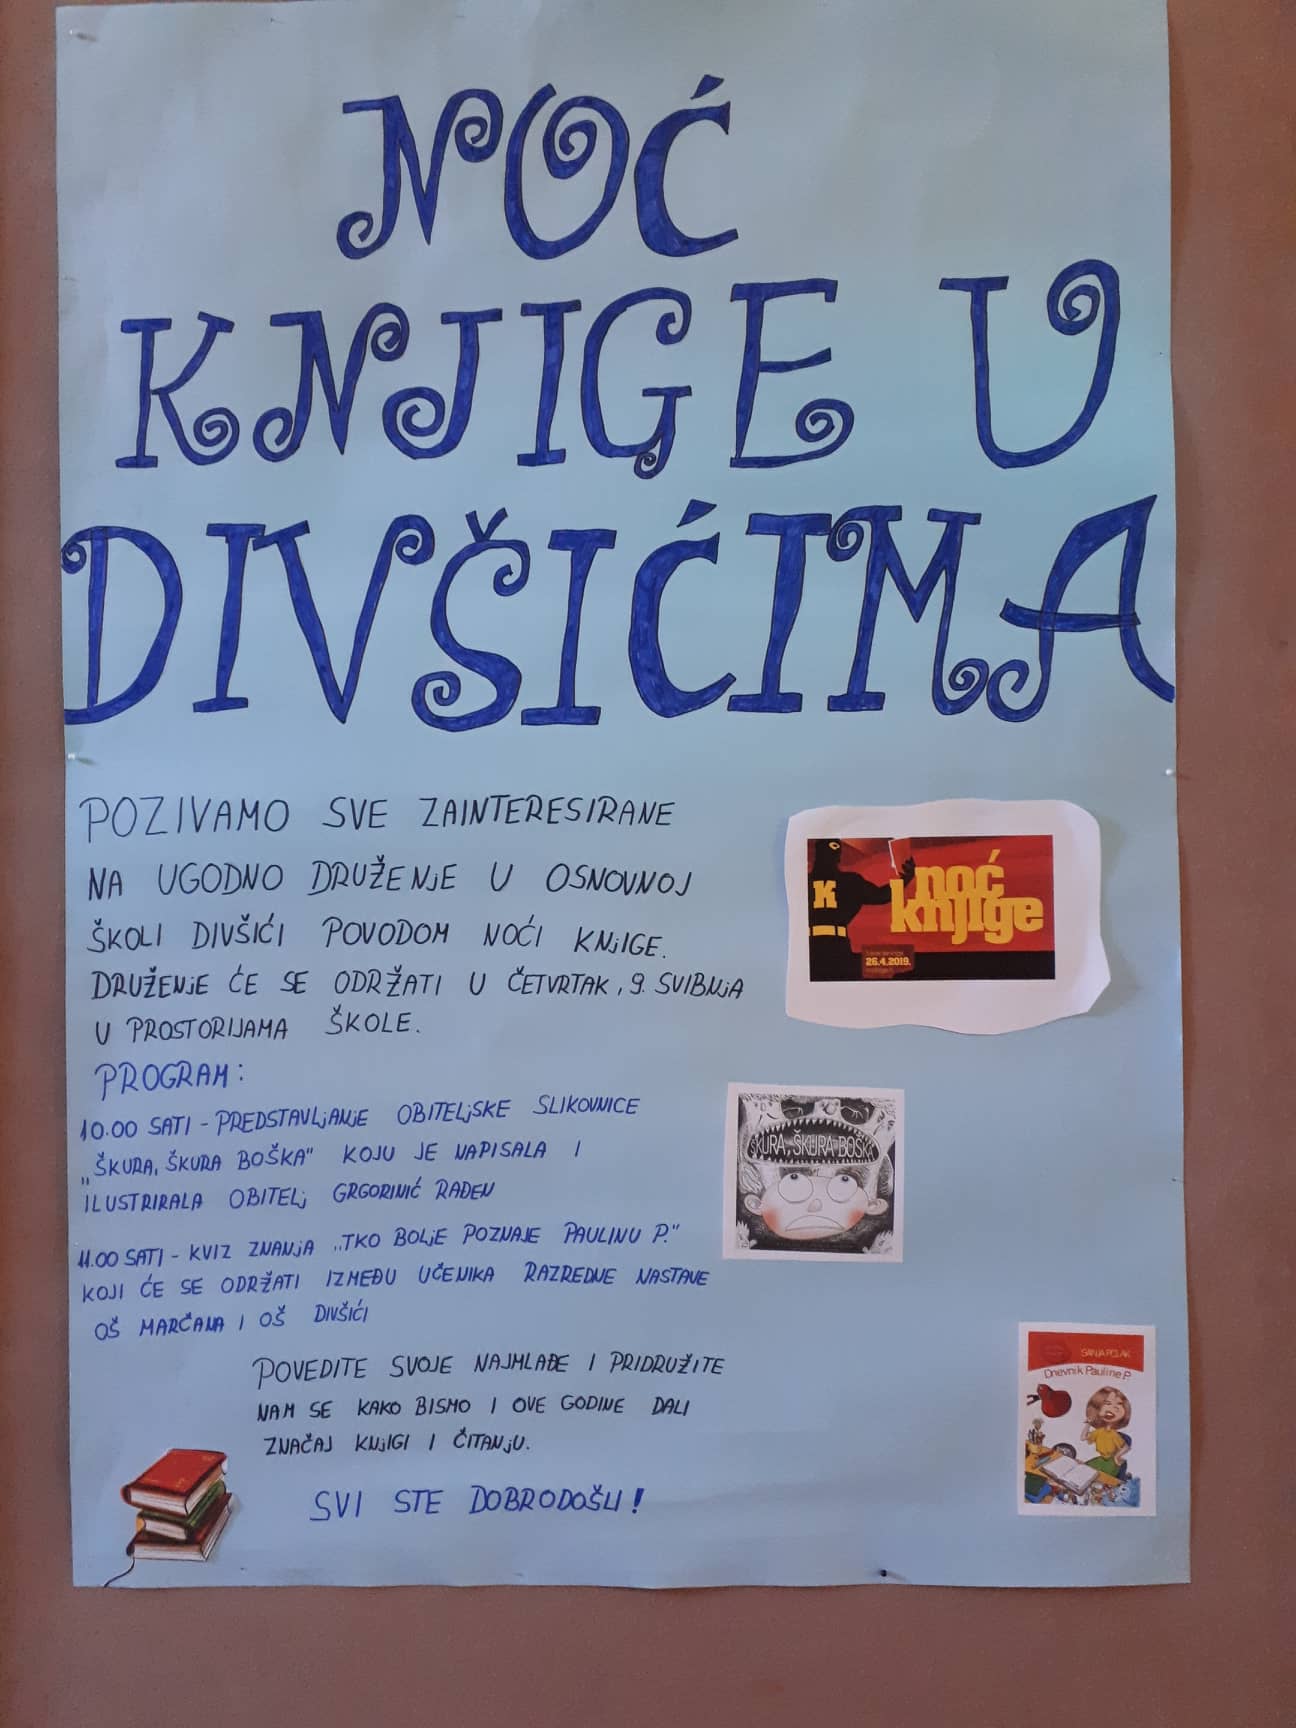 NOĆ
KNJIGE U
DIVŠIĆIMA
POZIVAMO SVE ZAINTERESIRANE
NA UGODNO DRUŽENJE U OSNOVNOJ
ŠKOLI DIVŠIĆI POVODOM NOĆI KNJIGE.
DRUŽENJE ĆE SE ODRŽATI U ČETVRTAK, 9. SVIBNJA
U PROSTORIJAMA ŠKOLE.
K
noć
knjige
26.4.2019.
PROGRAM:
10.00 SATI - PREDSTAVLJANJE OBITELJSKE SLIKOVNICE
„ŠKURA, ŠKURA BOŠKA" KOJU JE NAPISALA I
ILUSTRIRALA OBITELJ GRGORINIĆ RAĐEN
ŠKURA, ŠKURA BOŠKA
11.00 SATI - KVIZ ZNANJA „TKO BOLJE POZNAJE PAULINU P."
KOJI ĆE SE ODRŽATI IZMEĐU UČENIKA RAZREDNE NASTAVE
OŠ MARČANA I OŠ DIVŠIĆI
SANJA POLAK
Dnevnik Pauline P.
POVEDITE SVOJE NAJMLAĐE I PRIDRUŽITE
NAM SE KAKO BISMO I OVE GODINE DALI
ZNAČAJ KNJIGI I ČITANJU.
SVI STE DOBRODOŠLI!